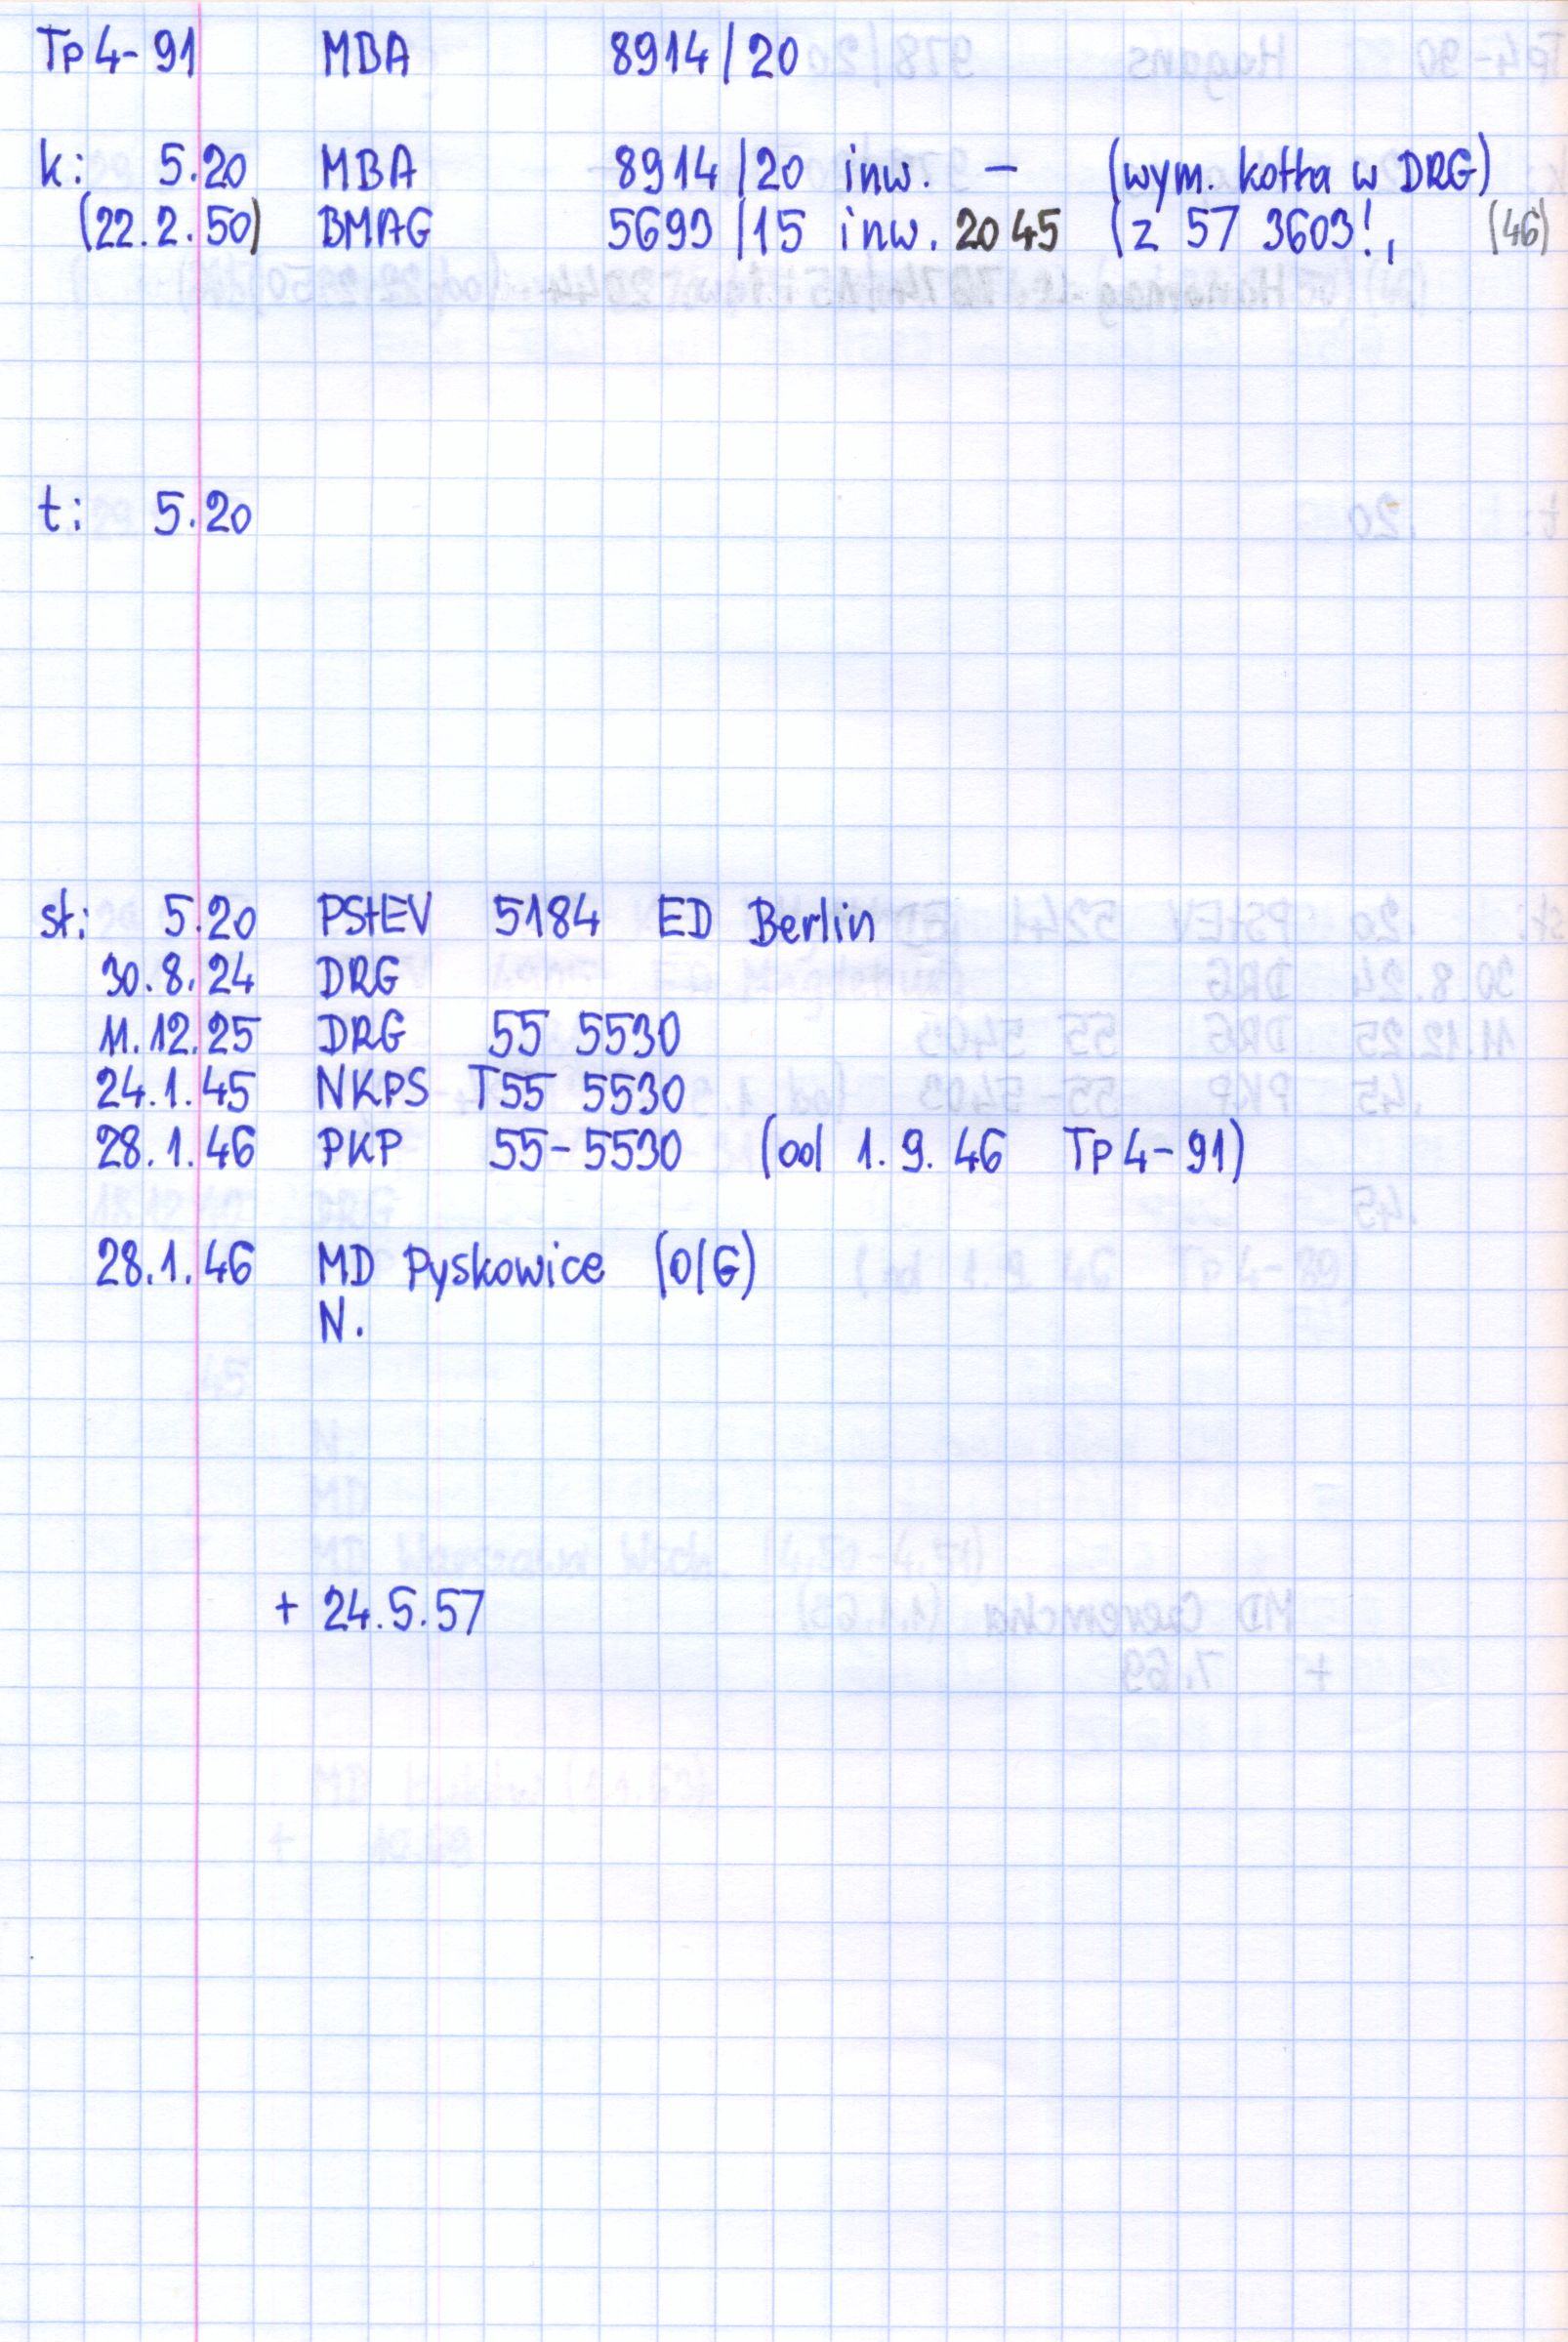 Tp4-91 MBA 8914/20
k: 5.20 MBA 8914/20 inw. - (wym. kotła w DRG)
(22.2.50) BMAG 5693/15 inw. 2045 (z 57 3603!, (46)
t: 5.20
st: 5.20 PStEV 5184 ED Berlin
30.8.24 DRG
11.12.25 DRG 55 5530
24.1.45 NKPS T55 5530
28.1.46 PKP 55-5530 (od 1.9.46 Tp4-91)
28.1.46 MD Pyskowice (O/G)
N.
+ 24.5.57